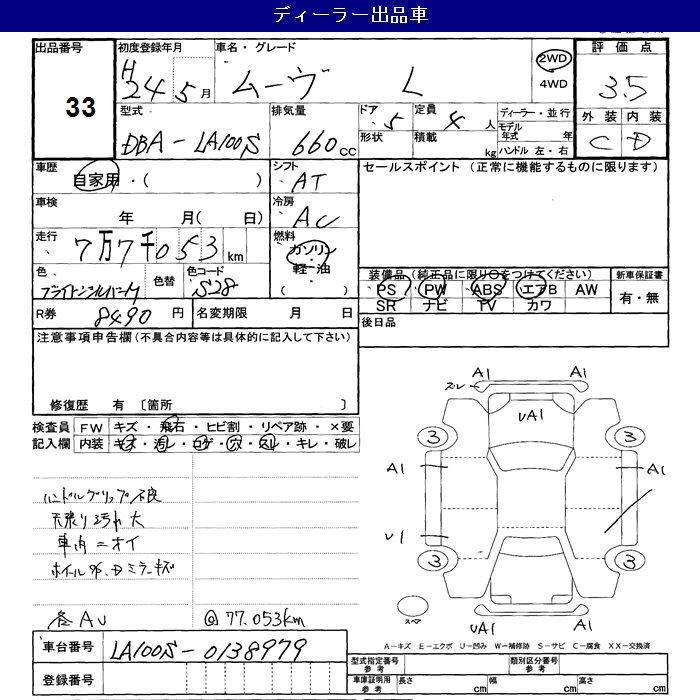 ディーラー出品車
出品番号
33
初度登録年月
H24 5月
車名・グレード
ムーヴ L
2WD
4WD
評価点
3.5
外装 内装
C D
型式
DBA-LA100S
排気量
660cc
ドア 5
形状
定員 4人
積載 kg
ディーラー・並行
モデル年式 年
ハンドル 左・右
車歴
自家用・( )
シフト
AT
セールスポイント (正常に機能するものに限ります)
車検
年 月( 日)
冷房
AC
走行
7万7千053km
燃料
ガソリン
軽・油
( )
色
ブライトシルバーM
色替
色コード
S28
装備品(純正品に限り○をつけてください)
PS PW ABS エアB AW
SR ナビ TV カワ
新車保証書
有・無
R券 8490円
名変期限 月 日
後日品
注意事項申告欄(不具合内容等は具体的に記入して下さい)
修復歴 有 〔箇所 〕
検査員記入欄
FW キズ・飛石・ヒビ割・リペア跡・×要
内装 キズ・汚レ・コゲ・穴・スレ・キレ・破レ
ハンドルグリップ不良
天張り汚れ大
車内ニオイ
ホイールキズ、Dミラーキズ
各AU
@77.053km
スレ A1 A1
UA1
3 3
A1 A1
U1
3 3
スペア
UA1 A1
A-キズ E-エクボ U-凹み W-補修跡 S-サビ C-腐食 XX-交換済
車台番号
LA100S-0138979
登録番号
型式指定番号 参考
類別区分番号 参考
車庫証明用 参考
長さ cm
幅 cm
高さ cm